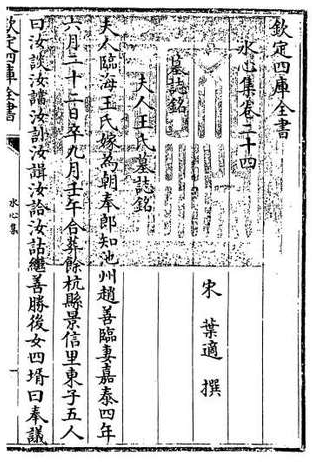 欽定四庫全書
水心集卷二十四
宋 葉適 撰
墓誌銘
夫人王氏墓誌銘
夫人臨海王氏嫁為朝奉郎知池州趙善臨妻嘉泰四年
六月二十二日卒九月壬午合葬餘杭縣景信里東子五人
曰汝談汝讜汝訓汝諿汝詥汝詁繼善勝後女四壻曰奉議
欽定四庫全書
水心集
一